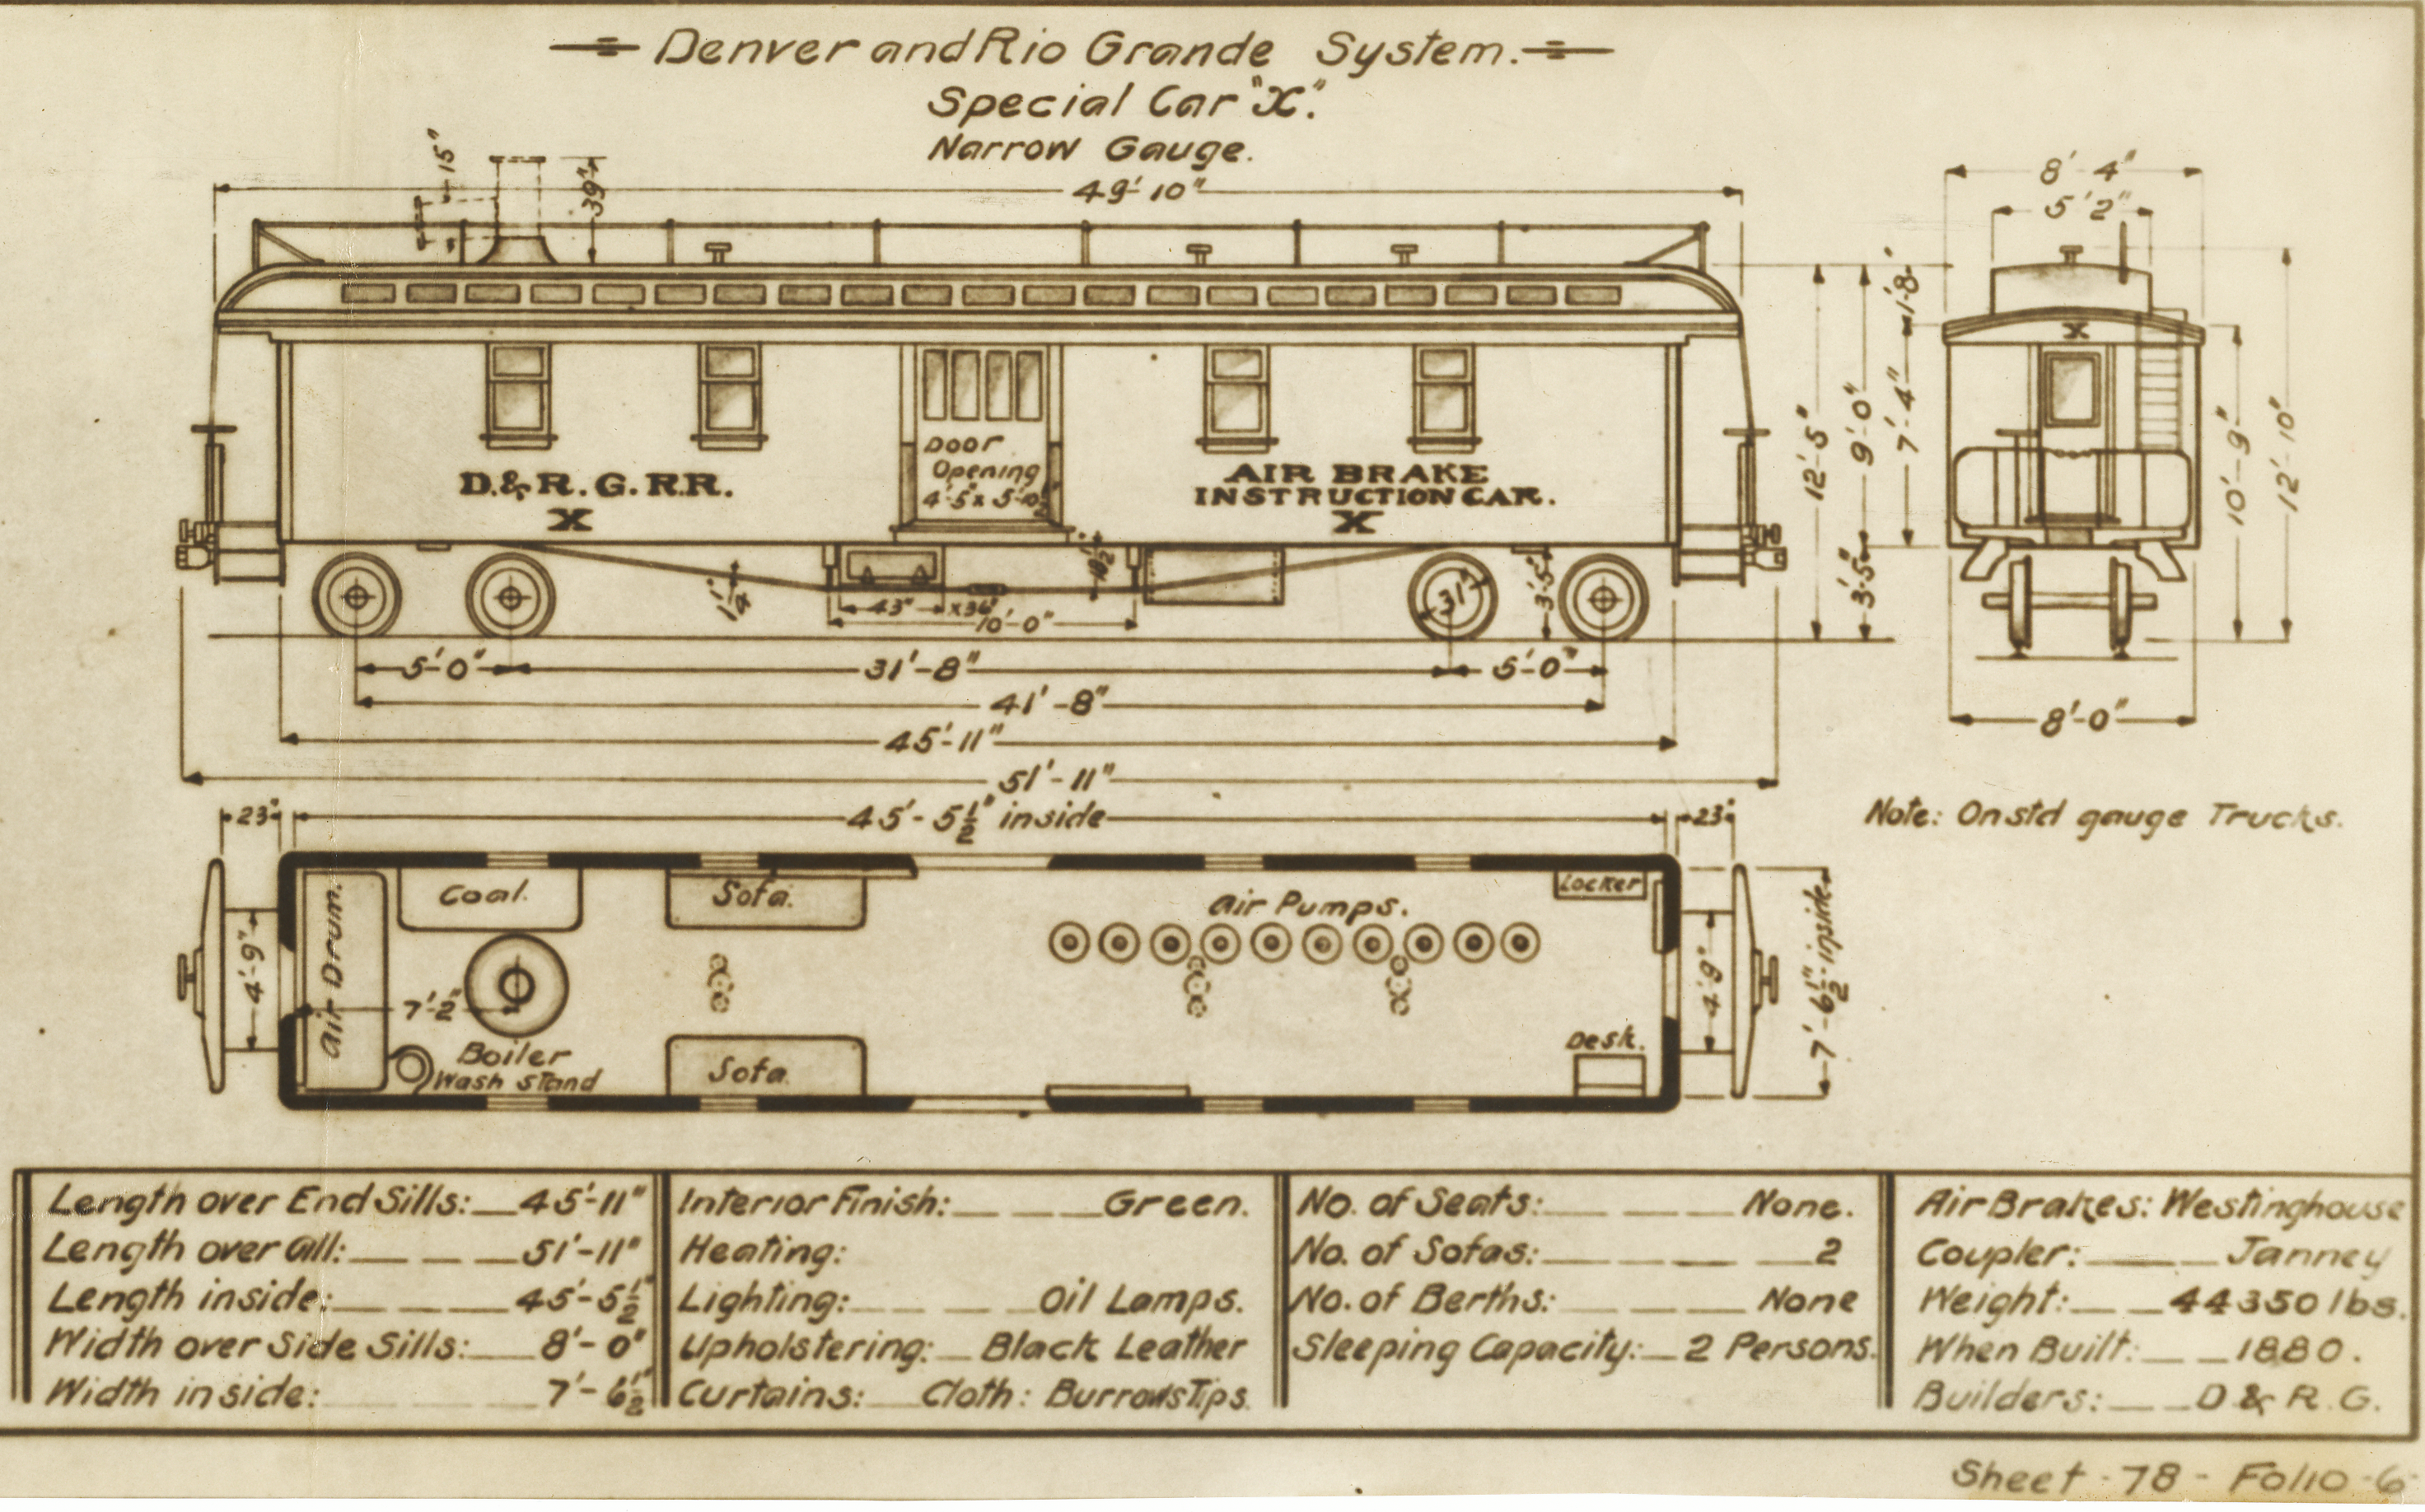 Denver and Rio Grande System.
Special Car "X".
Narrow Gauge.
15"
39"
49'-10"
8'-4"
5'2"
1'-8"
12'-5"
9'-0"
7'-4"
3'-5"
10'-9"
12'-10"
Door
Opening
4'-5" x 5'-10½"
D.& R. G. R.R.
X
AIR BRAKE
INSTRUCTION CAR.
X
X
1¼"
43" x 36"
10'-0"
18½"
31"
3'-5"
5'-0"
31'-8"
5'-0"
41'-8"
45'-11"
51'-11"
8'-0"
23"
45'-5½" inside
23"
Note: On std gauge Trucks.
Air Drum.
Coal.
Sofa.
Air Pumps.
Locker
4'-9"
7'-2"
4'-9"
7'-6½" inside
Boiler
Wash Stand
Sofa
Desk.
Length over End Sills: 45'-11"
Length over all: 51'-11"
Length inside: 45'-5½"
Width over Side Sills: 8'-0"
Width inside: 7'-6½"
Interior Finish: Green.
Heating:
Lighting: Oil Lamps.
Upholstering: Black Leather
Curtains: Cloth: Burrows Tips.
No. of Seats: None.
No. of Sofas: 2
No. of Berths: None
Sleeping Capacity: 2 Persons.
Air Brakes: Westinghouse
Coupler: Janney
Weight: 44350 lbs.
When Built: 1880.
Builders: D & R. G.
Sheet - 78 - Folio - 6